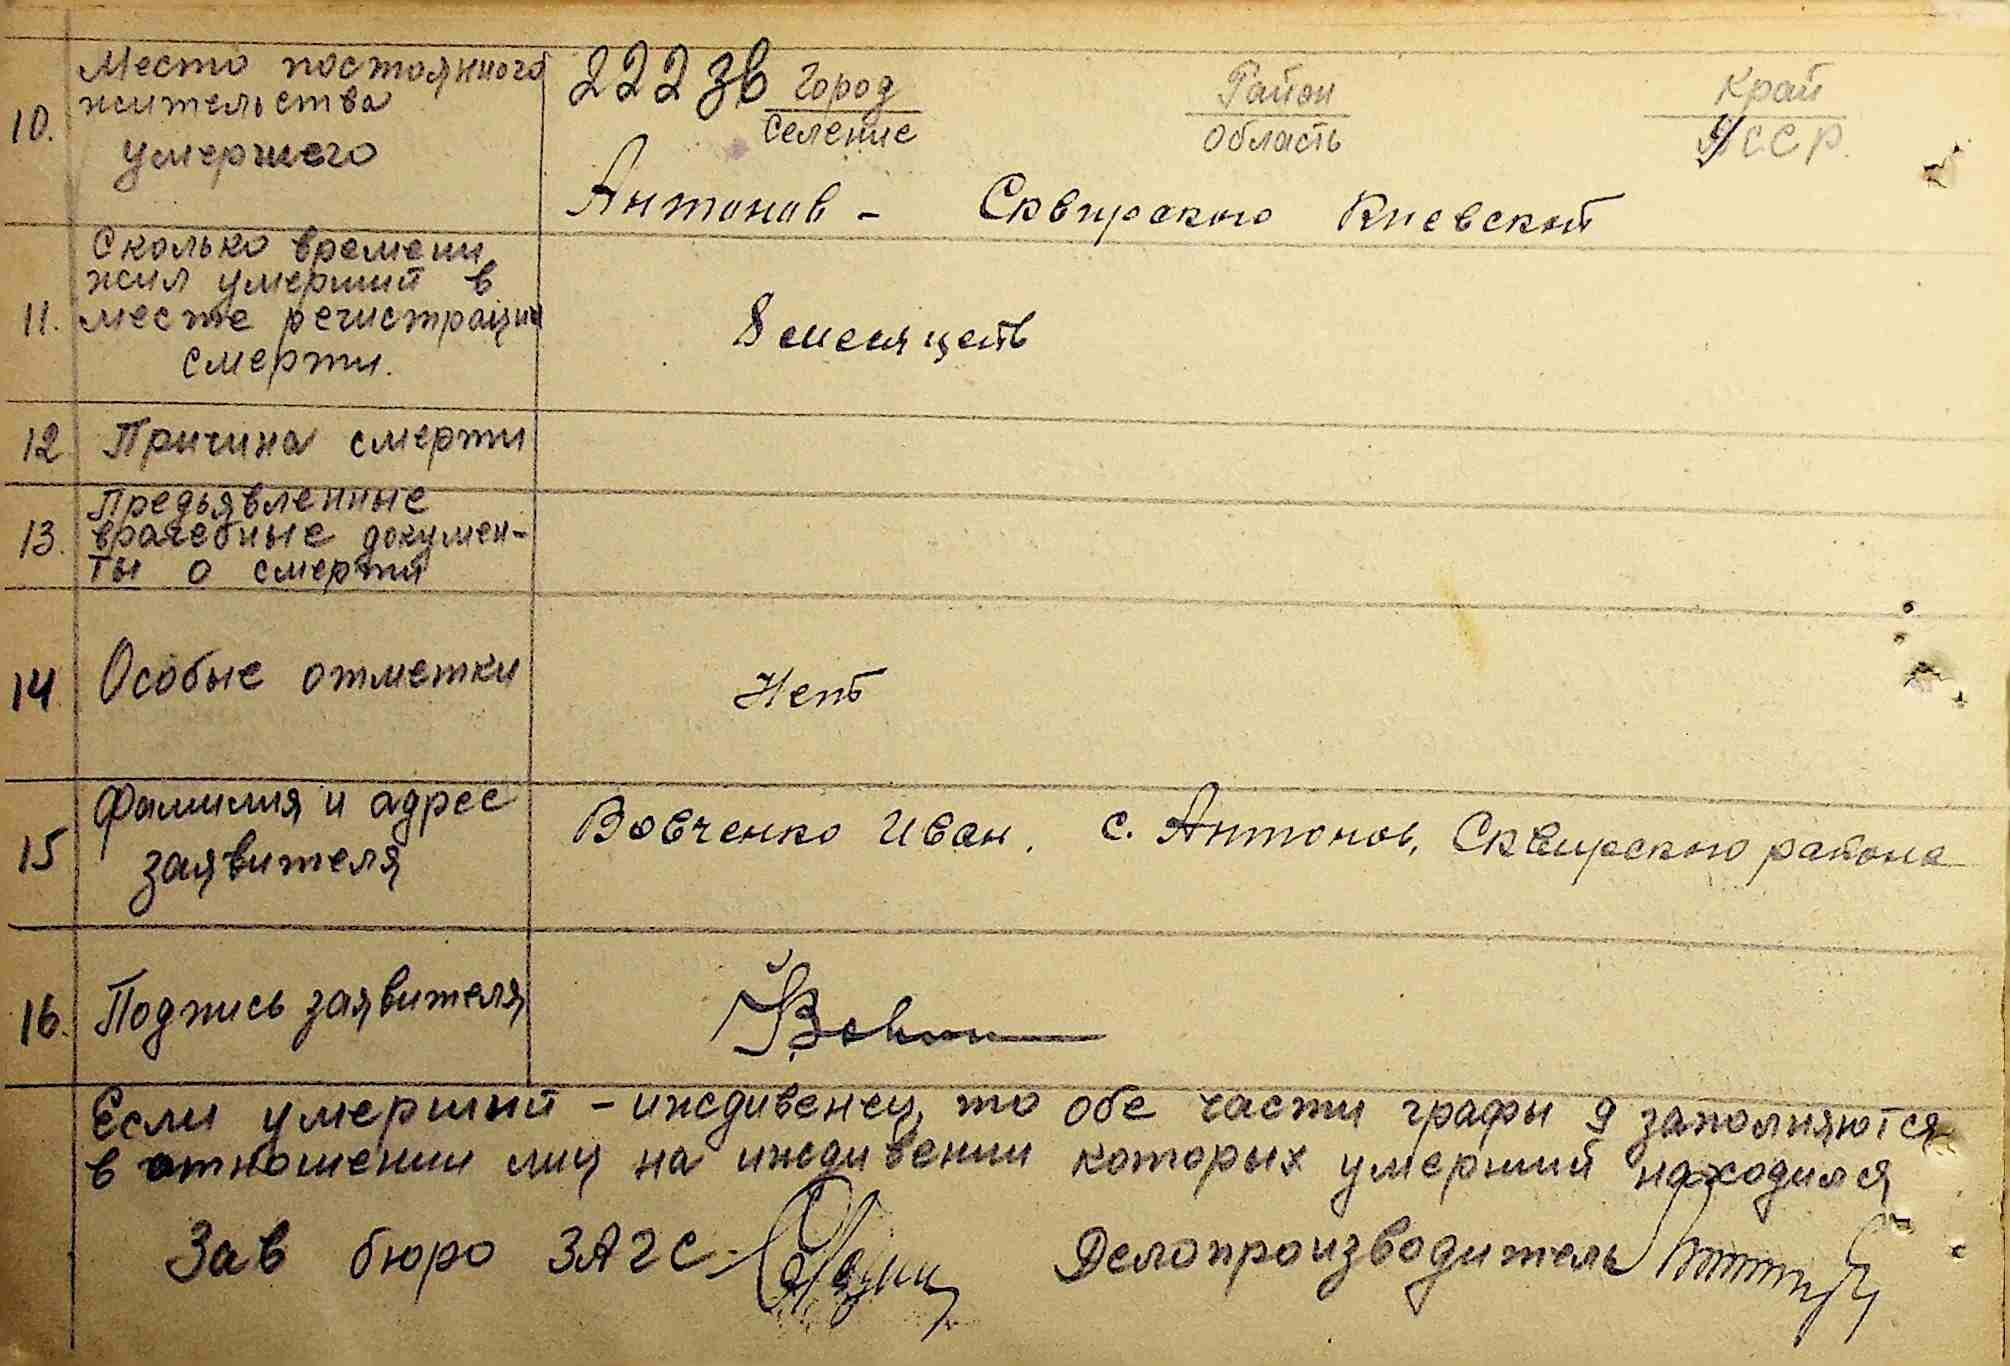 10. Место постоянного
жительства
умершего
222 зв Город Район Край
Селение Область УССР.
Антонов - Сквирского Киевской
11. Сколько времени
жил умерший в
месте регистрации
смерти.
8 месяцев
12 Причина смерти
13. Предъявленные
врачебные докумен-
ты о смерти
14 Особые отметки Нет
15 Фамилия и адрес
заявителя
Вовченко Иван. с. Антонов, Сквирского района
16. Подпись заявителя
Если умерший - иждивенец, то обе части графы 9 заполняются
в отношении лиц на иждивении которых умерший находился
Зав бюро ЗАГС- Делопроизводитель